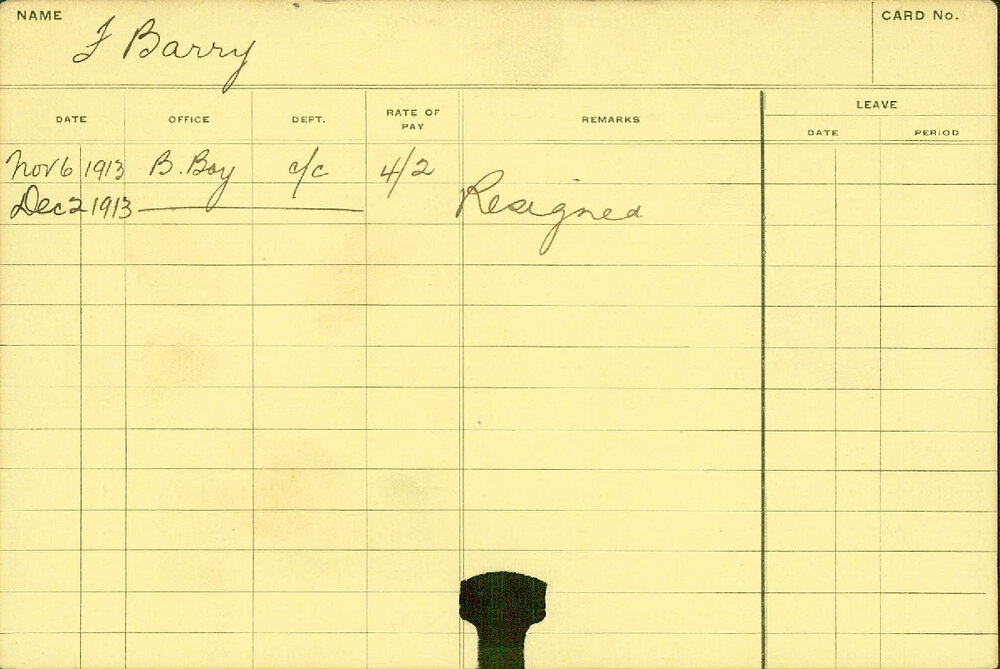 NAME
CARD No.
F Barry
DATE OFFICE DEPT. RATE OF PAY REMARKS LEAVE
DATE PERIOD
Nov 6 1913 B. Boy c/c 4/2
Dec 2 1913 Resigned